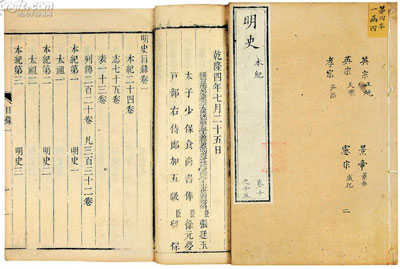 第四本
一函四
明史 本紀
英宗 正統
景帝 景泰
英宗 天順
憲宗 成化
孝宗 弘治
二
乾隆四年七月二十五日
張廷玉
太子少保食尚書俸臣徐元夢
戶部右侍郎加五級臣
保
明史目錄一
本紀二十四卷
志七十五卷
表一十三卷
列傳二百二十卷 凡三百三十二卷
本紀第一 明史一
太祖一
本紀第二 明史二
太祖二
本紀第三 明史三
目錄一